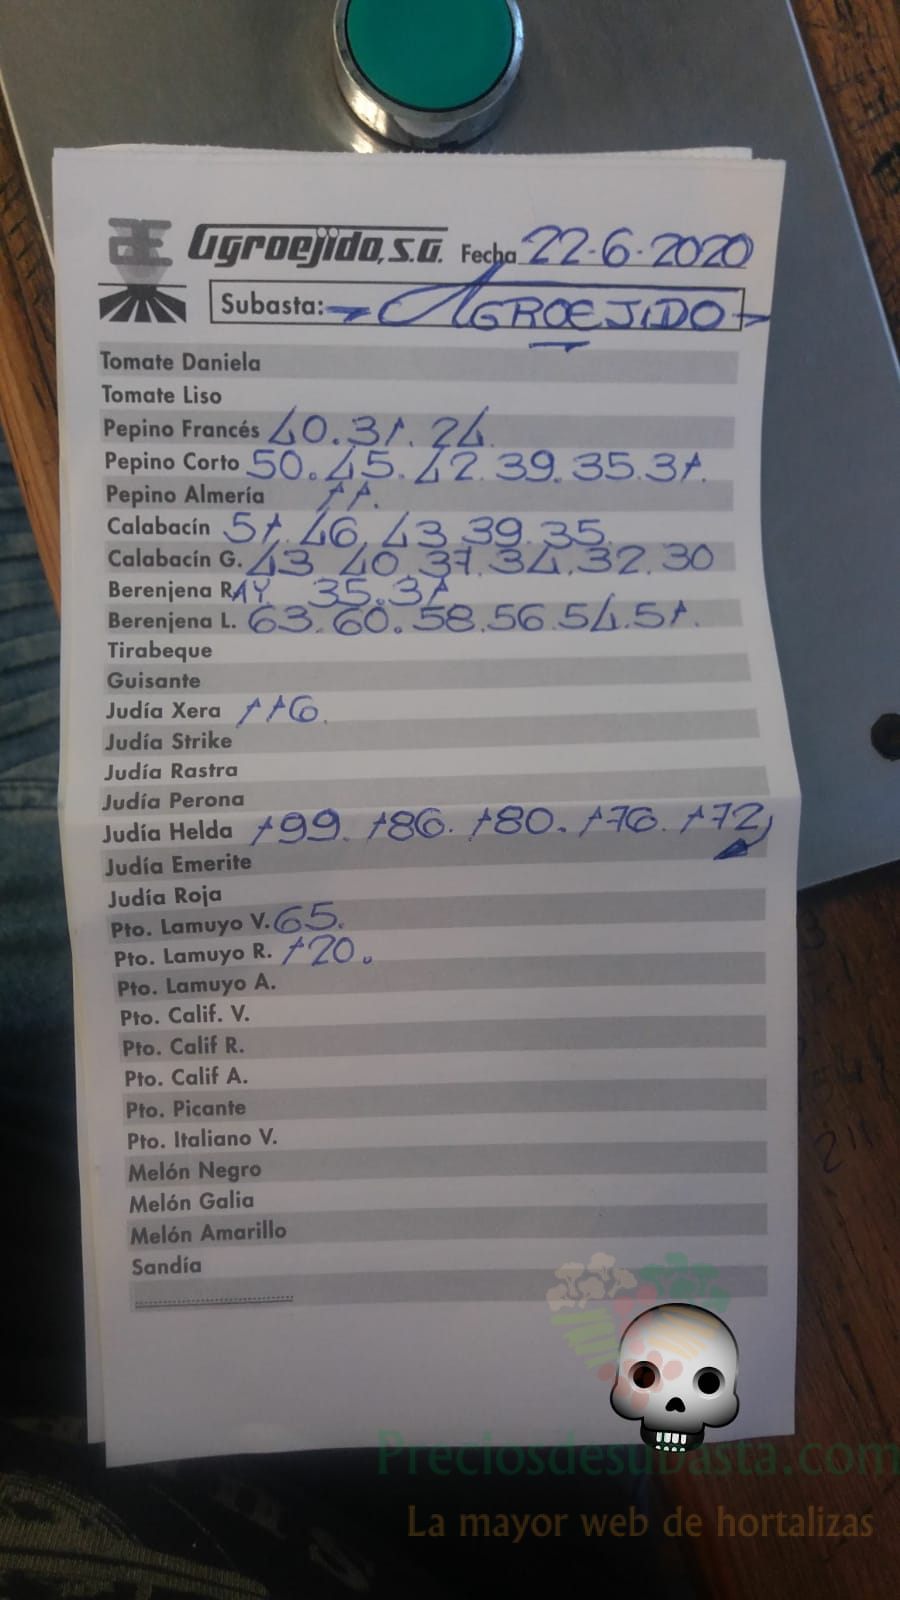 Agroejido, S.A. Fecha 22-6-2020
Subasta: - AGROEJIDO -
Tomate Daniela
Tomate Liso
Pepino Francés 40.31.24.
Pepino Corto 50.45.42.39.35.31.
Pepino Almería 11.
Calabacín 51.46.43.39.35.
Calabacín G. 43 40.37.34.32.30
Berenjena RAY 35.31
Berenjena L. 63.60.58.56.54.51.
Tirabeque
Guisante
Judía Xera 116.
Judía Strike
Judía Rastra
Judía Perona
Judía Helda 199. 186. 180. 176. 172,
Judía Emerite
Judía Roja
Pto. Lamuyo V. 65.
Pto. Lamuyo R. 120.
Pto. Lamuyo A.
Pto. Calif. V.
Pto. Calif R.
Pto. Calif A.
Pto. Picante
Pto. Italiano V.
Melón Negro
Melón Galia
Melón Amarillo
Sandía
Preciosdesubasta.com
La mayor web de hortalizas